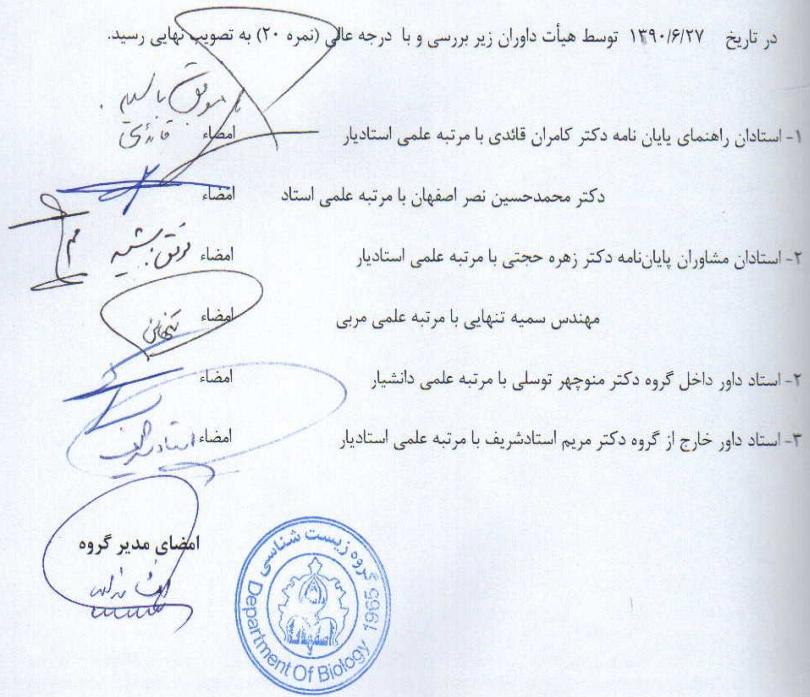 در تاریخ ۱۳۹۰/۶/۲۷ توسط هیأت داوران زیر بررسی و با درجه عالی (نمره ۲۰) به تصویب نهایی رسید.
۱- استادان راهنمای پایان نامه دکتر کامران قائدی با مرتبه علمی استادیار امضاء
دکتر محمدحسین نصر اصفهان با مرتبه علمی استاد امضاء
۲- استادان مشاوران پایان‌نامه دکتر زهره حجتی با مرتبه علمی استادیار امضاء
مهندس سمیه تنهایی با مرتبه علمی مربی امضاء
۲- استاد داور داخل گروه دکتر منوچهر توسلی با مرتبه علمی دانشیار امضاء
۳- استاد داور خارج از گروه دکتر مریم استادشریف با مرتبه علمی استادیار امضاء
امضای مدیر گروه
گروه زیست شناسی
اصفهان
Department Of Biology 1965